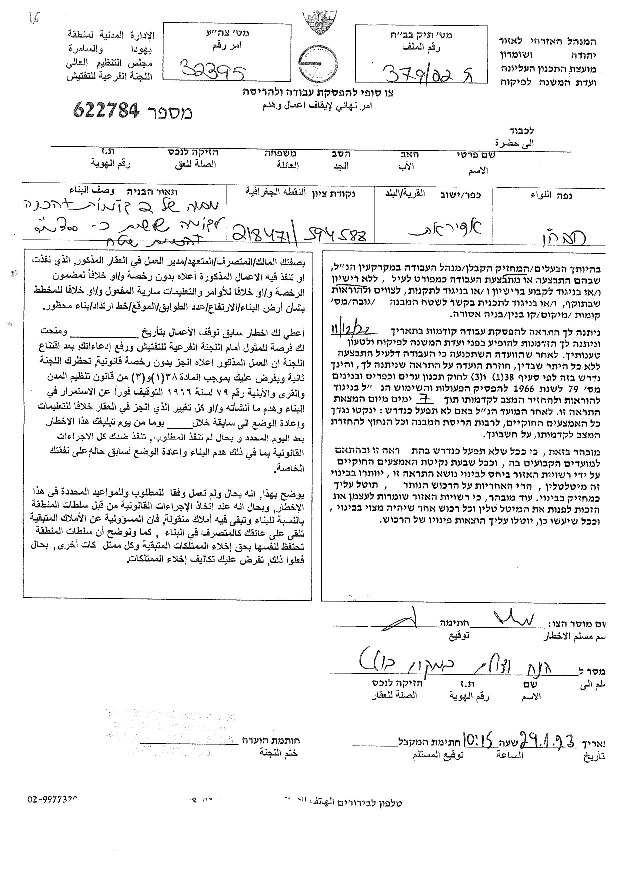 15
המנהל האזרחי לאזור
יהודה ושומרון
מועצת התכנון העליונה
ועדת המשנה לפיקוח
מס׳ תיק בב״ח
رقم الملف
379/22
מס׳ צה״ע
امر رقم
32395
الادارة المدنية لمنطقة
يهودا والسامرة
مجلس التنظيم العالي
اللجنة الفرعية للتفتيش
צו סופי להפסקת עבודה ולהריסה
امر نهائي لإيقاف اعمال وهدم
מספר 622784
לכבוד
الى حضرة
שם פרטי האב הסב משפחה הזיקה לנכס ת.ז
الاسم الأب الجد العائلة الصلة للعق رقم الهوية
נפה اللواء כפר/ישוב القرية/البلد נקודת ציון النقطة الجغرافية תאור הבניה وصف البناء
218471/594588
בהיותך הבעלים/המחזיק הקבלן/מנהל העבודה במקרקעין הנ״ל,
שבהם התבצעה או מתבצעת העבודה כמפורט לעיל, ללא רישיון
ו/או בניגוד לקבוע ברישיון ו/או בניגוד לתקנות, לצווים ולהוראות
שבתוקף, ו/או בניגוד לתכנית בקשר לשטח המבנה /גובה/מס׳
קומות /מיקום/קו בנין/בניה אסורה.
ניתנה לך התראה להפסקת עבודה קודמות בתאריך 11/12/22
וניתנה לך הזדמנות להופיע בפני ועדת המשנה לפיקוח ולטעון
טענותיך. לאחר שהוועדה השתכנעה כי העבודה דלעיל התבצעה
ללא כל היתר שבדין, חוזרת הועדה על התראה שניתנה לך, והינך
נדרש בזה לפי סעיף 38(1) ו(3) לחוק תכנון ערים וכפרים ובנינים
מס׳ 79 לשנת 1966 להפסיק הפעולות והשימוש הנ״ל בניגוד
להוראות ולהחזיר המצב לקדמותו תוך 7 ימים מיום המצאת
התראה זו. לאחר המועד הנ״ל באם לא תפעל כנדרש: ינקטו נגדך
כל האמצעים החוקיים, לרבות הריסת המבנה וכל הנחוץ להחזרת
המצב לקדמותו, על חשבונך.
מובהר בזאת, כי ככל שלא תפעל כנדרש בהת ראה זו ובהתאם
למועדים הקבועים בה, וככל שבעת נקיטת האמצעים החוקיים
על ידי רשויות האזור ביחס לבינוי נושא התראה זו, יוותרו בבינוי
זה מיטלטלין, הרי האחריות על הרכוש הנותר, תוטל עליך
כמחזיק בבינוי. עוד מובהר, כי רשויות האזור שומרות לעצמן את
הזכות לפנות את המיטלטלין וכל רכוש אחר שיהיה מצוי בבינוי,
וככל שיעשו כן, יוטלו עליך הוצאות פינויו של הרכוש.
بصفتك المالك/المتصرف/المتعهد/مدير العمل في العقار المذكور الذي نفذت
او تنفذ فيه الاعمال المذكورة اعلاه بدون رخصة و/او خلافاً لمضمون
الرخصة و/او خلافاً للأوامر والتعليمات سارية المفعول و/او خلافاً للمخطط
بشأن أرض البناء/الارتفاع/عدد الطوابق/الموقع/خط ارتداد/بناء محظور.
اعطي لك اخطار سابق توقف الأعمال بتاريخ ومنحت
لك فرصة للمثول أمام اللجنة الفرعية للتفتيش ورفع إدعاءاتك. بعد اقتناع
اللجنة ان العمل المذكور اعلاه انجز بدون رخصة قانونية, تحظرك اللجنة
ثانية ويفرض عليك بموجب المادة ٣٨(١)و(٣) من قانون تنظيم المدن
والقرى والأبنية رقم ٧٩ لسنة ١٩٦٦ التوقيف فوراً عن الاستمرار في
البناء وهدم ما أنشأته و/او كل تغيير الذي انجز في العقار خلافا للتعليمات
وإعادة الوضع الى سابقة خلال يوما من يوم تبليغك هذا الاخطار.
بعد اليوم المحدد و بحال لم تنفذ المطلوب, تنفذ ضدك كل الاجراءات
القانونية بما في ذلك هدم البناء وإعادة الوضع لسابق حاله على نفقتك
الخاصة.
يوضح بهذا, انه بحال ولم تعمل وفقا للمطلوب وللمواعيد المحددة في هذا
الاخطار, وبحال انه عند إتخاذ الإجراءات القانونية من قبل سلطات المنطقة
بالنسبة للبناء وتبقى فيه أملاك منقولة, فان المسؤولية عن الأملاك المتبقية
تلقى على عاتقك كالمتصرف في البناء, كما ونوضح أن سلطات المنطقة
تحتفظ لنفسها بحق إخلاء الممتلكات المتبقية وكل ممتل كات أخرى, بحال
فعلوا ذلك, تفرض عليك تكاليف إخلاء الممتلكات.
ום מוסר הצו: חתימה
سم مسلم الاخطار توقيع
מסר ל
שם ת.ז הזיקה לנכס
الاسم رقم الهوية الصلة للعقار
אריך 29.1.23 שעה 10:15 חתימת המקבל
تاريخ الساعة توقيع المستلم
חותמת הועדה
ختم اللجنة
טלפון לבירורים الهاتف